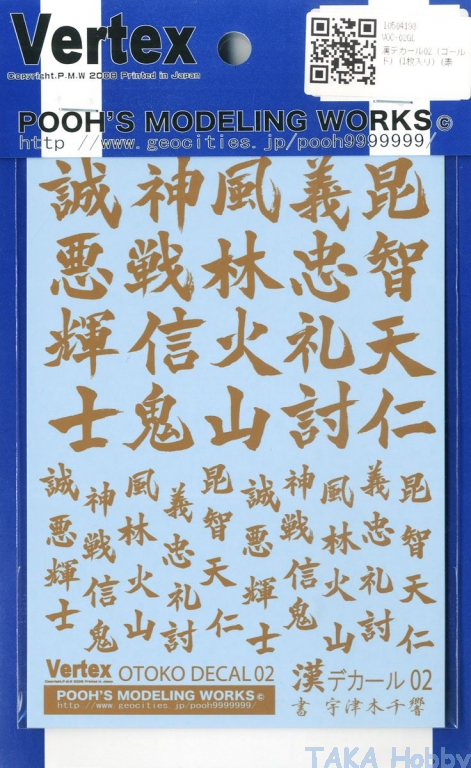 Vertex
Copyright.P.M.W 2008 Printed in Japan
10504198
VOC-02GL
漢デカール02 (ゴール
ド) (1枚入り) (素
POOH'S MODELING WORKS©
http://www.geocities.jp/pooh9999999/
誠神風義昆
悪戦林忠智
輝信火礼天
士鬼山討仁
誠神風義昆誠神風義昆
悪戦林忠智悪戦林忠智
輝信火礼天輝信火礼天
士鬼山討仁士鬼山討仁
Vertex OTOKO DECAL 02
Copyright.P.M.W 2008 Printed in Japan
POOH'S MODELING WORKS©
http://www.geocities.jp/pooh9999999/
漢デカール 02
書 宇津木千響
TAKA Hobby